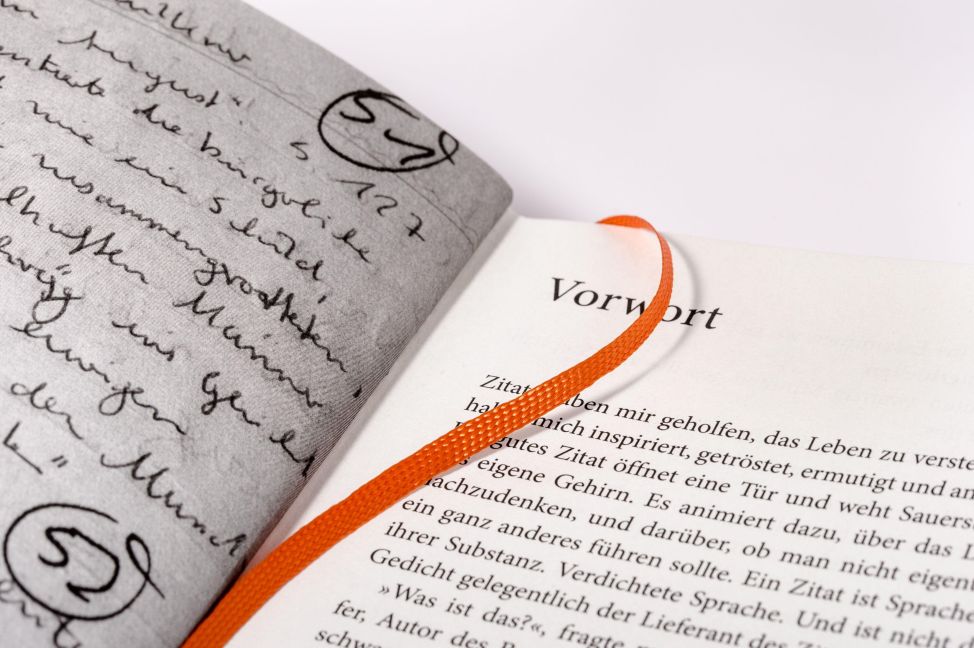 August"
S 127
51
die bürgerliche
wie ein Schild,
zusammengerotteten
Männer,
ins Gesicht
ewigen
den Mund
52
Vorwort
Zitate haben mir geholfen, das Leben zu verste
haben mich inspiriert, getröstet, ermutigt und an
gutes Zitat öffnet eine Tür und weht Sauers
s eigene Gehirn. Es animiert dazu, über das L
nachzudenken, und darüber, ob man nicht eigen
ein ganz anderes führen sollte. Ein Zitat ist Sprache
ihrer Substanz. Verdichtete Sprache. Und ist nicht d
Gedicht gelegentlich der Lieferant des Zi
»Was ist das?«, fragte
fer, Autor des
schwa